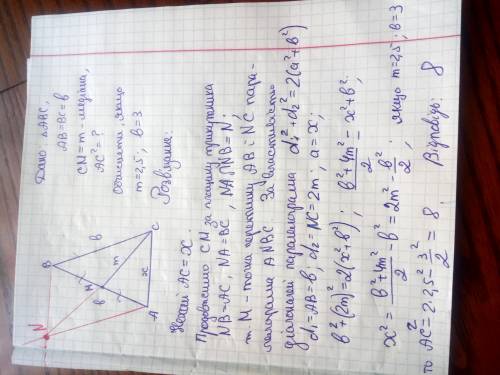 Дано: ΔABC,
AB=BC=b
CM=m-медіана,
AC²=?
Обчислити, якщо
m=2,5; b=3
Розв'язання:
N
B
M
b
b
m
A
x
C
Нехай AC=x.
Продовжимо CM за площину трикутника
NB=AC, NA=BC, NA∩NB=N;
т. M - точка перетину AB і NC пара-
лелограма ANBC. За властивістю
діагоналей паралелограма d₁²+d₂²=2(a²+b²)
d₁=AB=b; d₂=NC=2m; a=x;
b²+(2m)²=2(x²+b²); (b²+4m²)/2=x²+b²;
x²=(b²+4m²)/2-b²=2m²-b²/2; якщо m=2,5; b=3
то AC²=2·2,5²-3²/2=8. Відповідь: 8